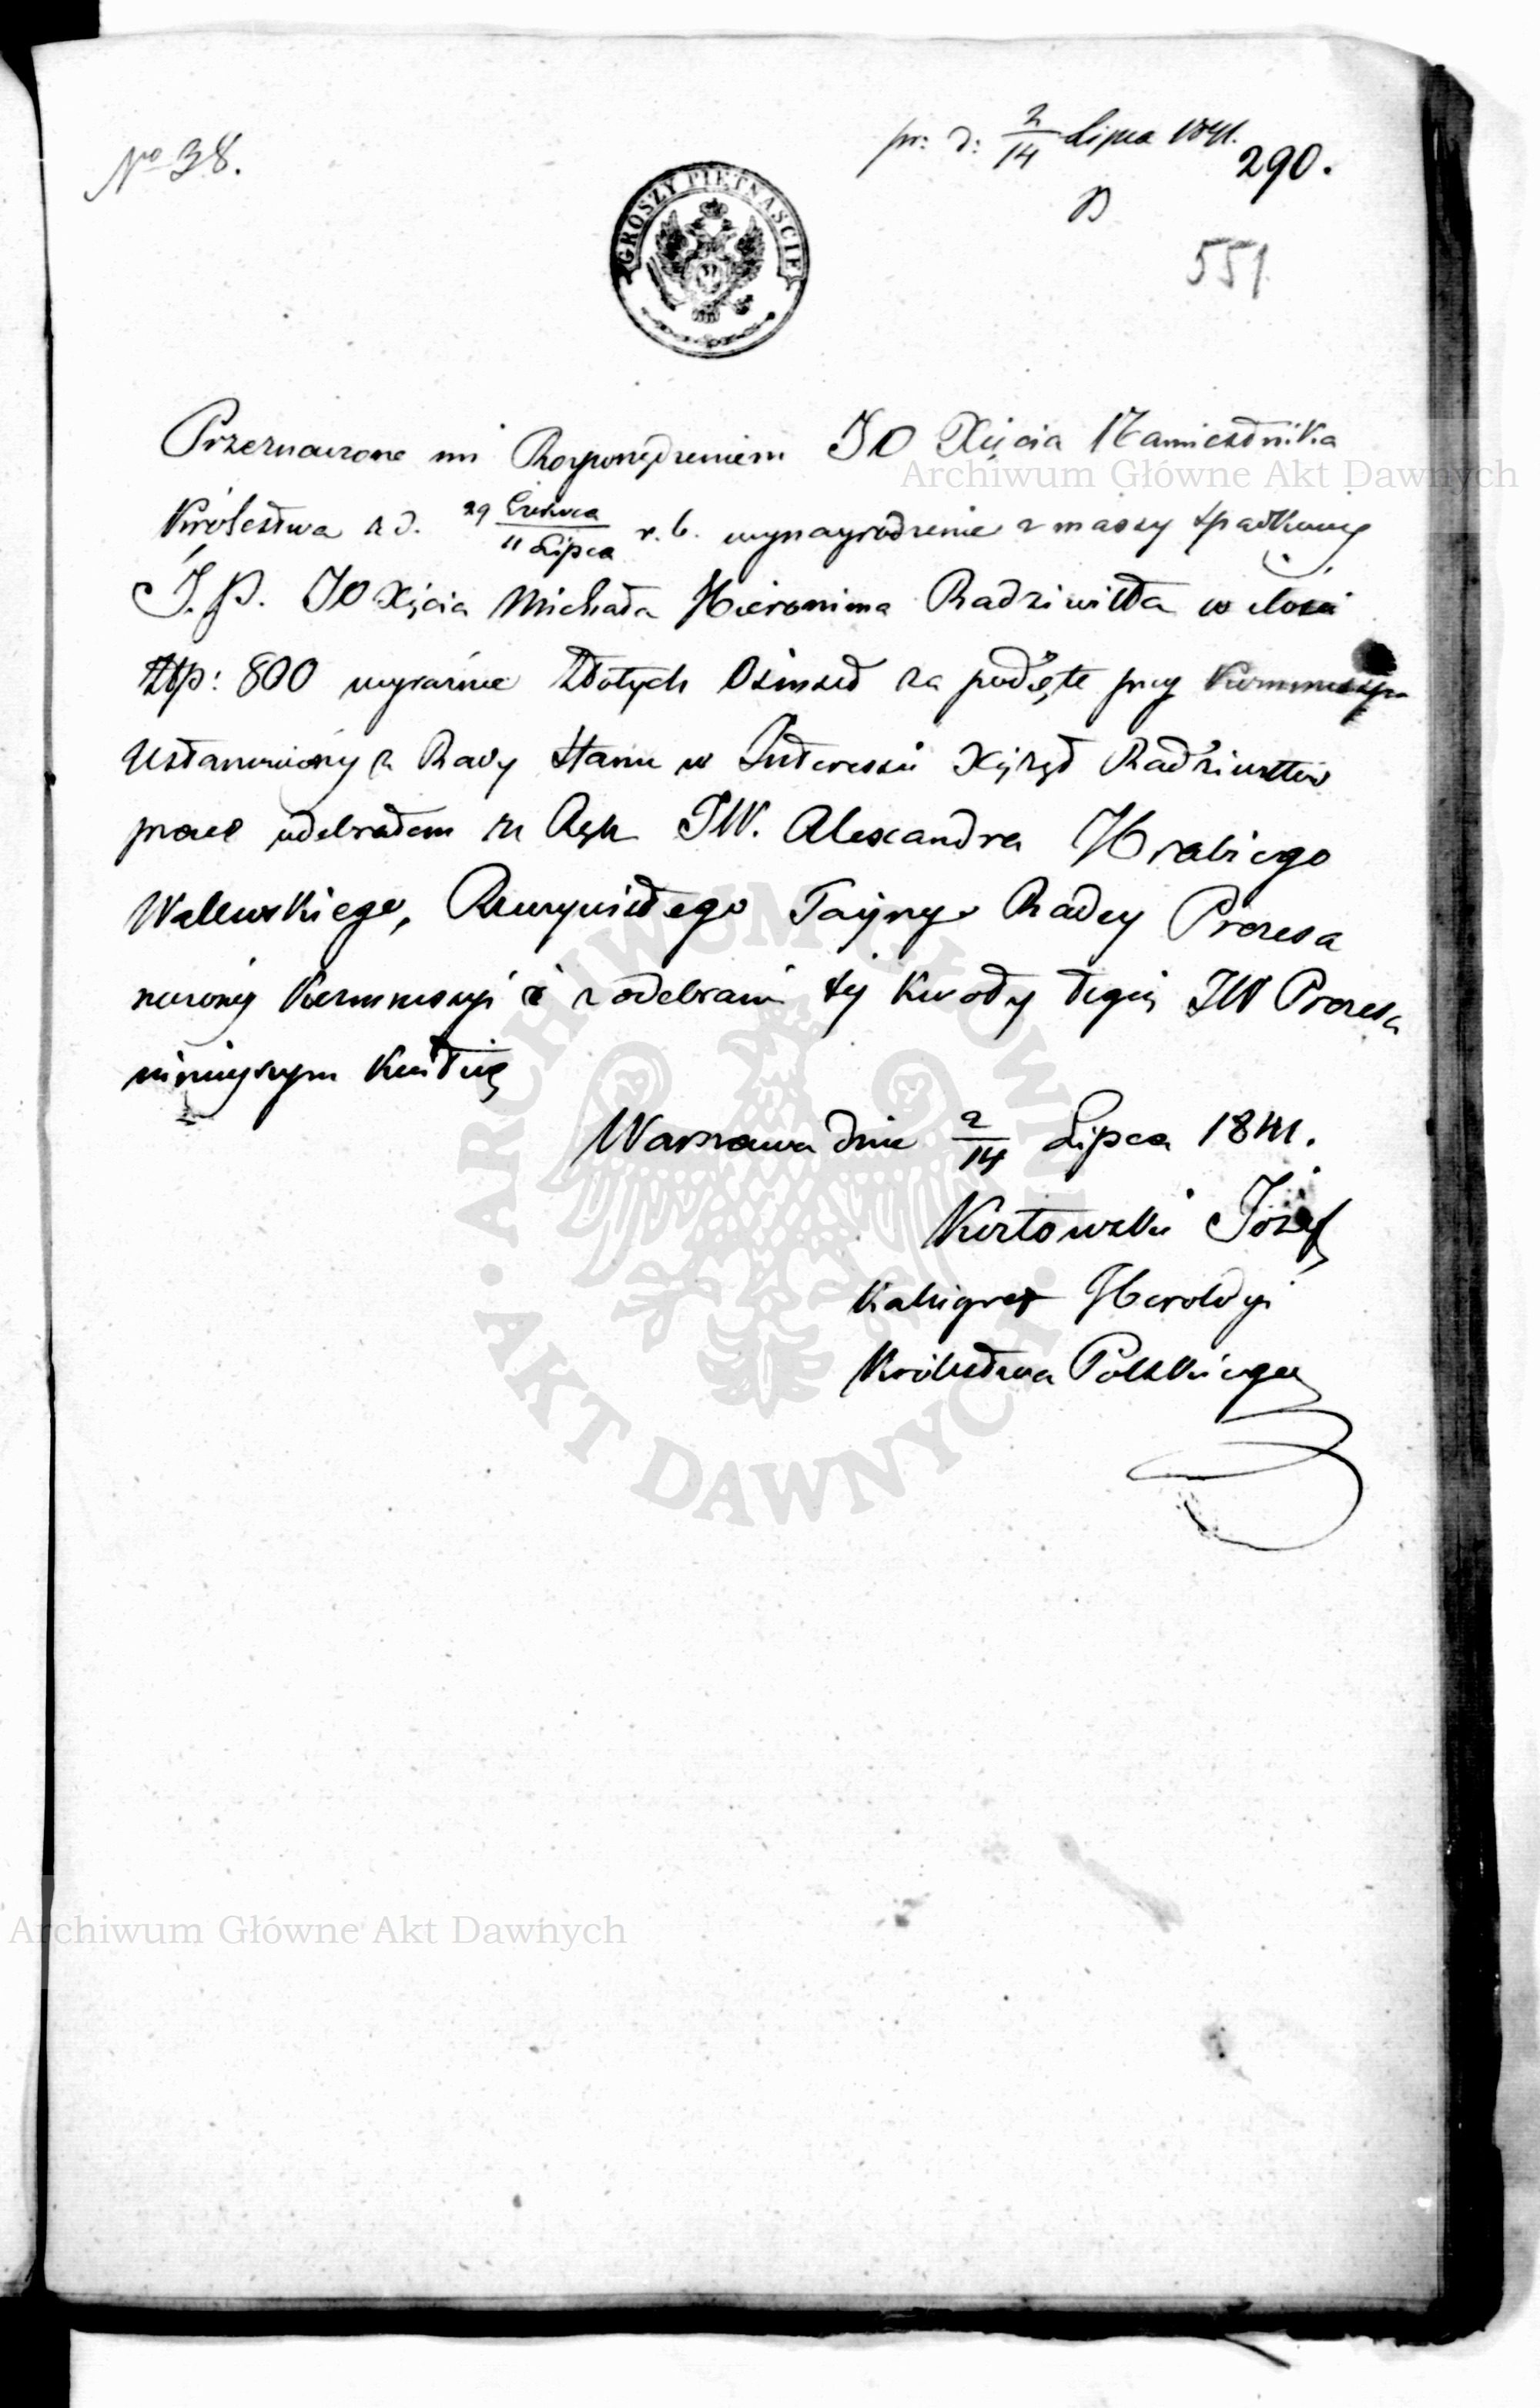 No 38.
pr: d: 2/14 Lipca 1841.
290.
551
GROSZY PIĘTNAŚCIE
Przeznaczone mi Rozporządzeniem JO Xięcia Namiestnika
Archiwum Główne Akt Dawnych
Królestwa z d. 29 Czerwca / 11 Lipca r. b. wynagrodzenie z massy spadkowéj
Ś. p. JO Xięcia Michała Hieronima Radziwiłła w ilości
Złp: 800 wyraźnie Złotych Ośmset za podięte przy Kommissyi
Ustanowionéj z Rady Stanu w Interessie Xiążąt Radziwiłłów
prace odebrałem z Rąk JW. Alexandra Hrabiego
Walewskiego, Rzeczywistego Taynego Radcy Prezesa
rzeczonéj Kommissyi i z odebrania téj kwoty tegoż JW Prezesa
ninieyszym kwituię
Warszawa dnia 2/14 Lipca 1841.
Józef
Kaligraf Heroldyi
Królestwa Polskiego
ARCHIWUM GŁÓWNE • AKT DAWNYCH •
Archiwum Główne Akt Dawnych